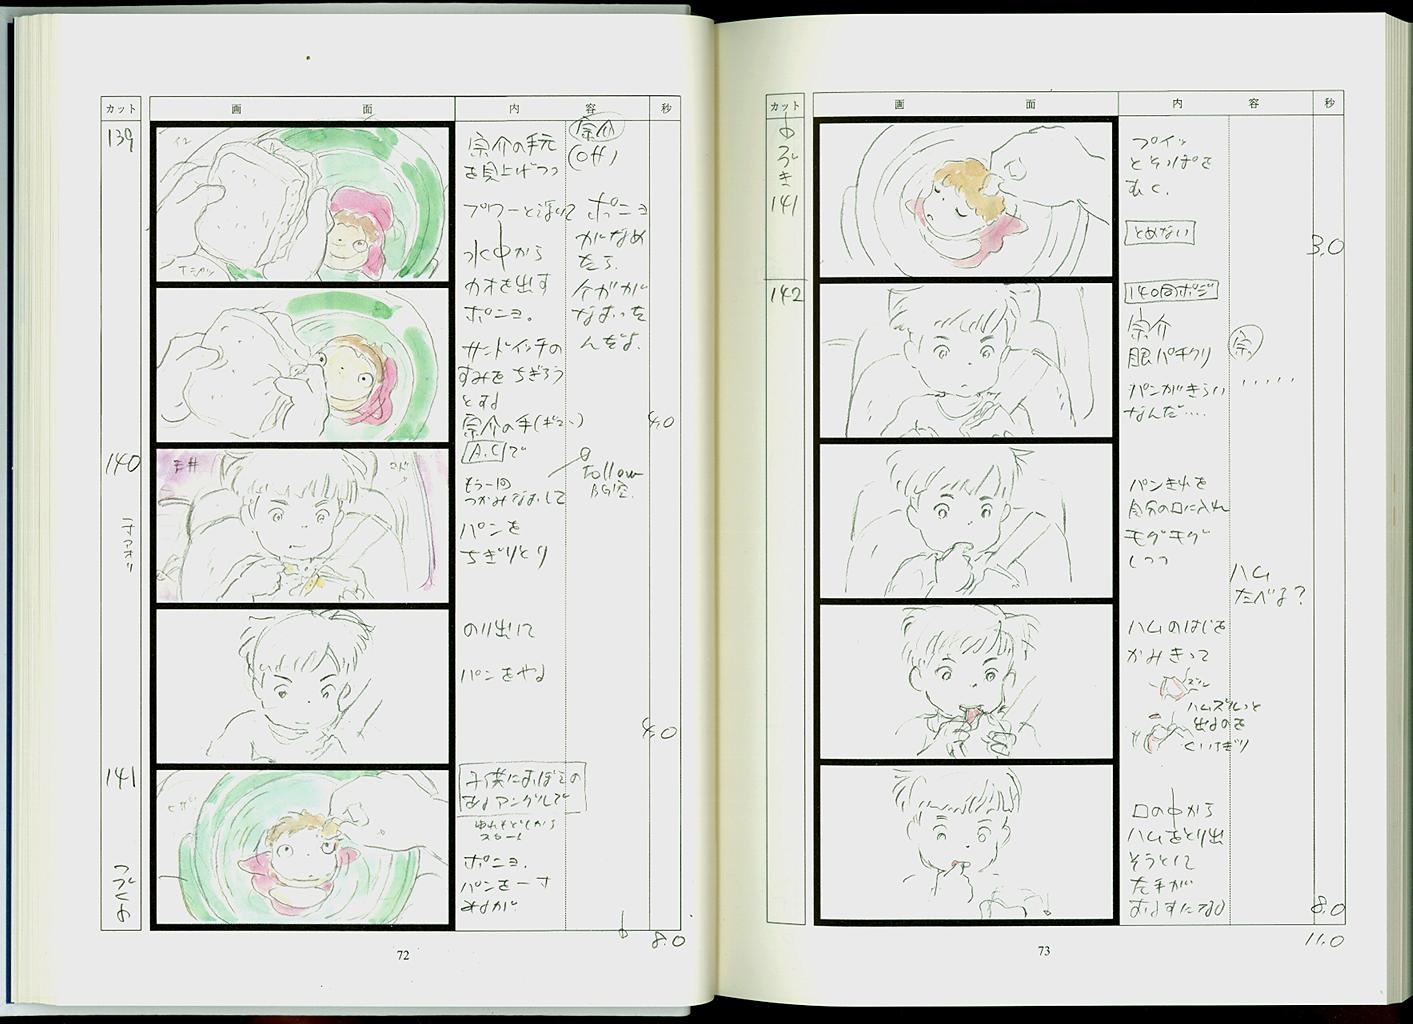 カット
画 面
内 容
秒
139
宗介の手元
を見上げつつ
プワーと浮いて
水中から
カオを出す
ポニョ。
サンドイッチの
すみをちぎろう
とする
宗介の手(ギュー)
宗介
(off)
ポニョ
がなめ
たら
ケガが
なおった
んだよ.
4.0
140
A.C で
もう一回
つかみなおして
パンを
ちぎりとり
follow
のり出して
パンをやる
4.0
141
ポニョ.
パンを一寸
みるが
つづく
8.0
72
カット
画 面
内 容
秒
つづき
141
プイッ
とそっぽを
むく.
とめない
3.0
142
140同ポジ
宗介
眼パチクリ
パンがきらい
なんだ‥‥
宗
‥‥‥
パンきれを
自分の口に入れ
モグモグ
しつつ
ハム
たべる?
ハムのはじを
かみきって
ハムズルッと
出るのを
くいちぎり
口の中から
ハムをとり出
そうとして
左手が
おるすになる
8.0
11.0
73